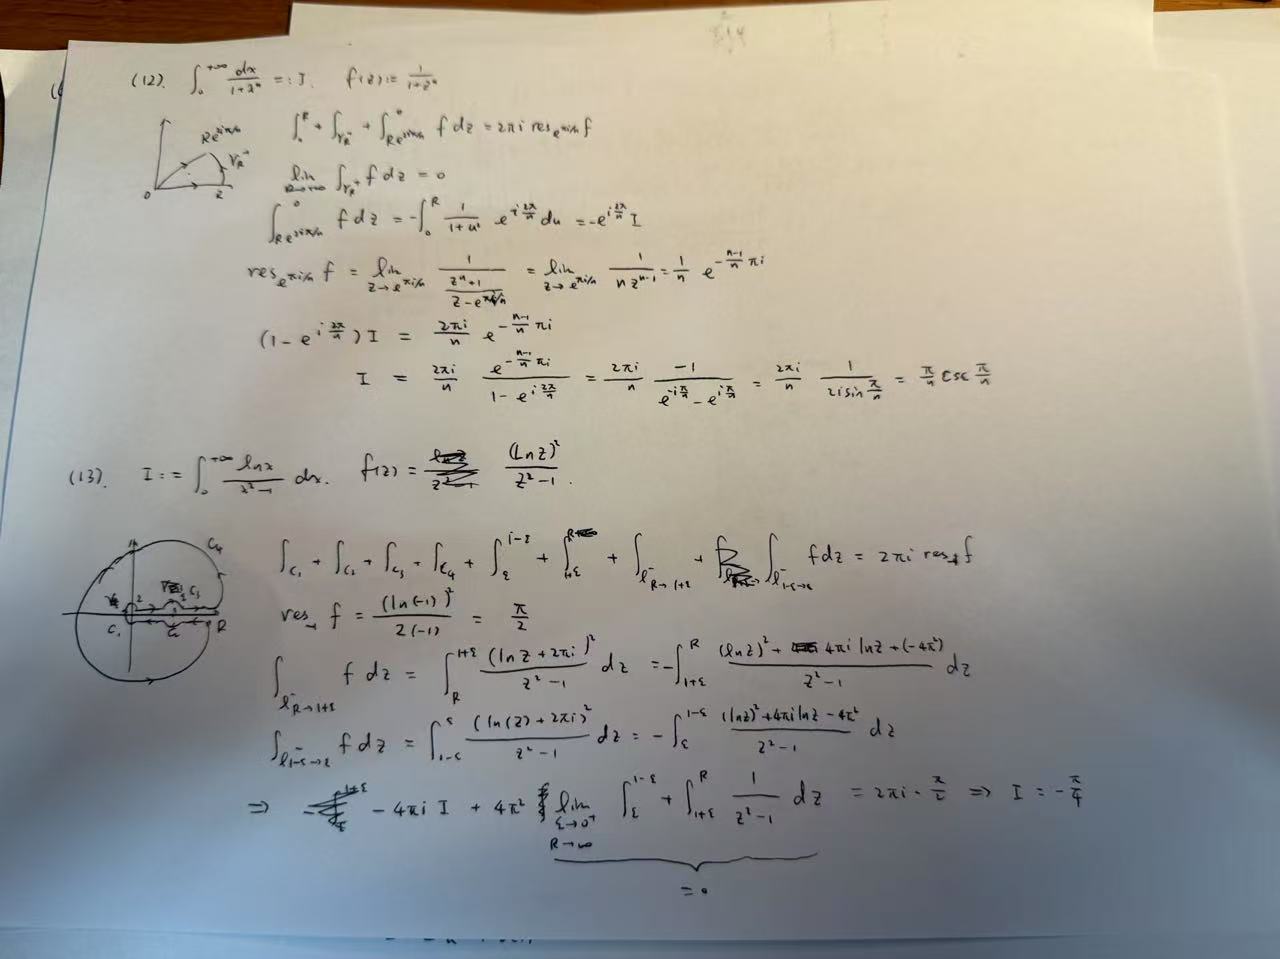 (12). ∫_0^{+∞} dx/(1+x^n) =: I. f(z) := 1/(1+z^n)
Re^{2iπ/n}
γ_R^+
0
R
∫_0^R + ∫_{γ_R^-} + ∫_{Re^{2iπ/n}}^0 f dz = 2πi res_{e^{πi/n}} f
lim_{R→+∞} ∫_{γ_R^+} f dz = 0
∫_{Re^{2iπ/n}}^0 f dz = -∫_0^R 1/(1+u^n) e^{i 2π/n} du = -e^{i 2π/n} I
res_{e^{πi/n}} f = lim_{z→e^{πi/n}} 1/((z^n+1)/(z-e^{πi/n})) = lim_{z→e^{πi/n}} 1/(n z^{n-1}) = 1/n e^{-(n-1)/n πi}
(1-e^{i 2π/n}) I = 2πi/n e^{-(n-1)/n πi}
I = 2πi/n e^{-(n-1)/n πi}/(1-e^{i 2π/n}) = 2πi/n -1/(e^{-iπ/n} - e^{iπ/n}) = 2πi/n 1/(2i sin π/n) = π/n csc π/n
(13). I := ∫_0^{+∞} lnx/(x^2-1) dx. f(z) = (Lnz)^2/(z^2-1).
C_4
C_3
C_1
R
∫_{C_1} + ∫_{C_2} + ∫_{C_3} + ∫_{C_4} + ∫_ε^{1-ε} + ∫_{1+ε}^R + ∫_{l^-_{R→1+ε}} + ∫_{l^-_{1-ε→ε}} f dz = 2πi res_{-1} f
res_{-1} f = (ln(-1))^2/(2(-1)) = π/2
∫_{l^-_{R→1+ε}} f dz = ∫_R^{1+ε} (lnz+2πi)^2/(z^2-1) dz = -∫_{1+ε}^R ((lnz)^2 + 4πi lnz + (-4π^2))/(z^2-1) dz
∫_{l^-_{1-ε→ε}} f dz = ∫_{1-ε}^ε (ln(z)+2πi)^2/(z^2-1) dz = -∫_ε^{1-ε} ((lnz)^2+4πi lnz-4π^2)/(z^2-1) dz
⇒ -4πi I + 4π^2 lim_{ε→0^+, R→∞} ∫_ε^{1-ε} + ∫_{1+ε}^R 1/(z^2-1) dz = 2πi · π/2 ⇒ I = -π/4
= 0